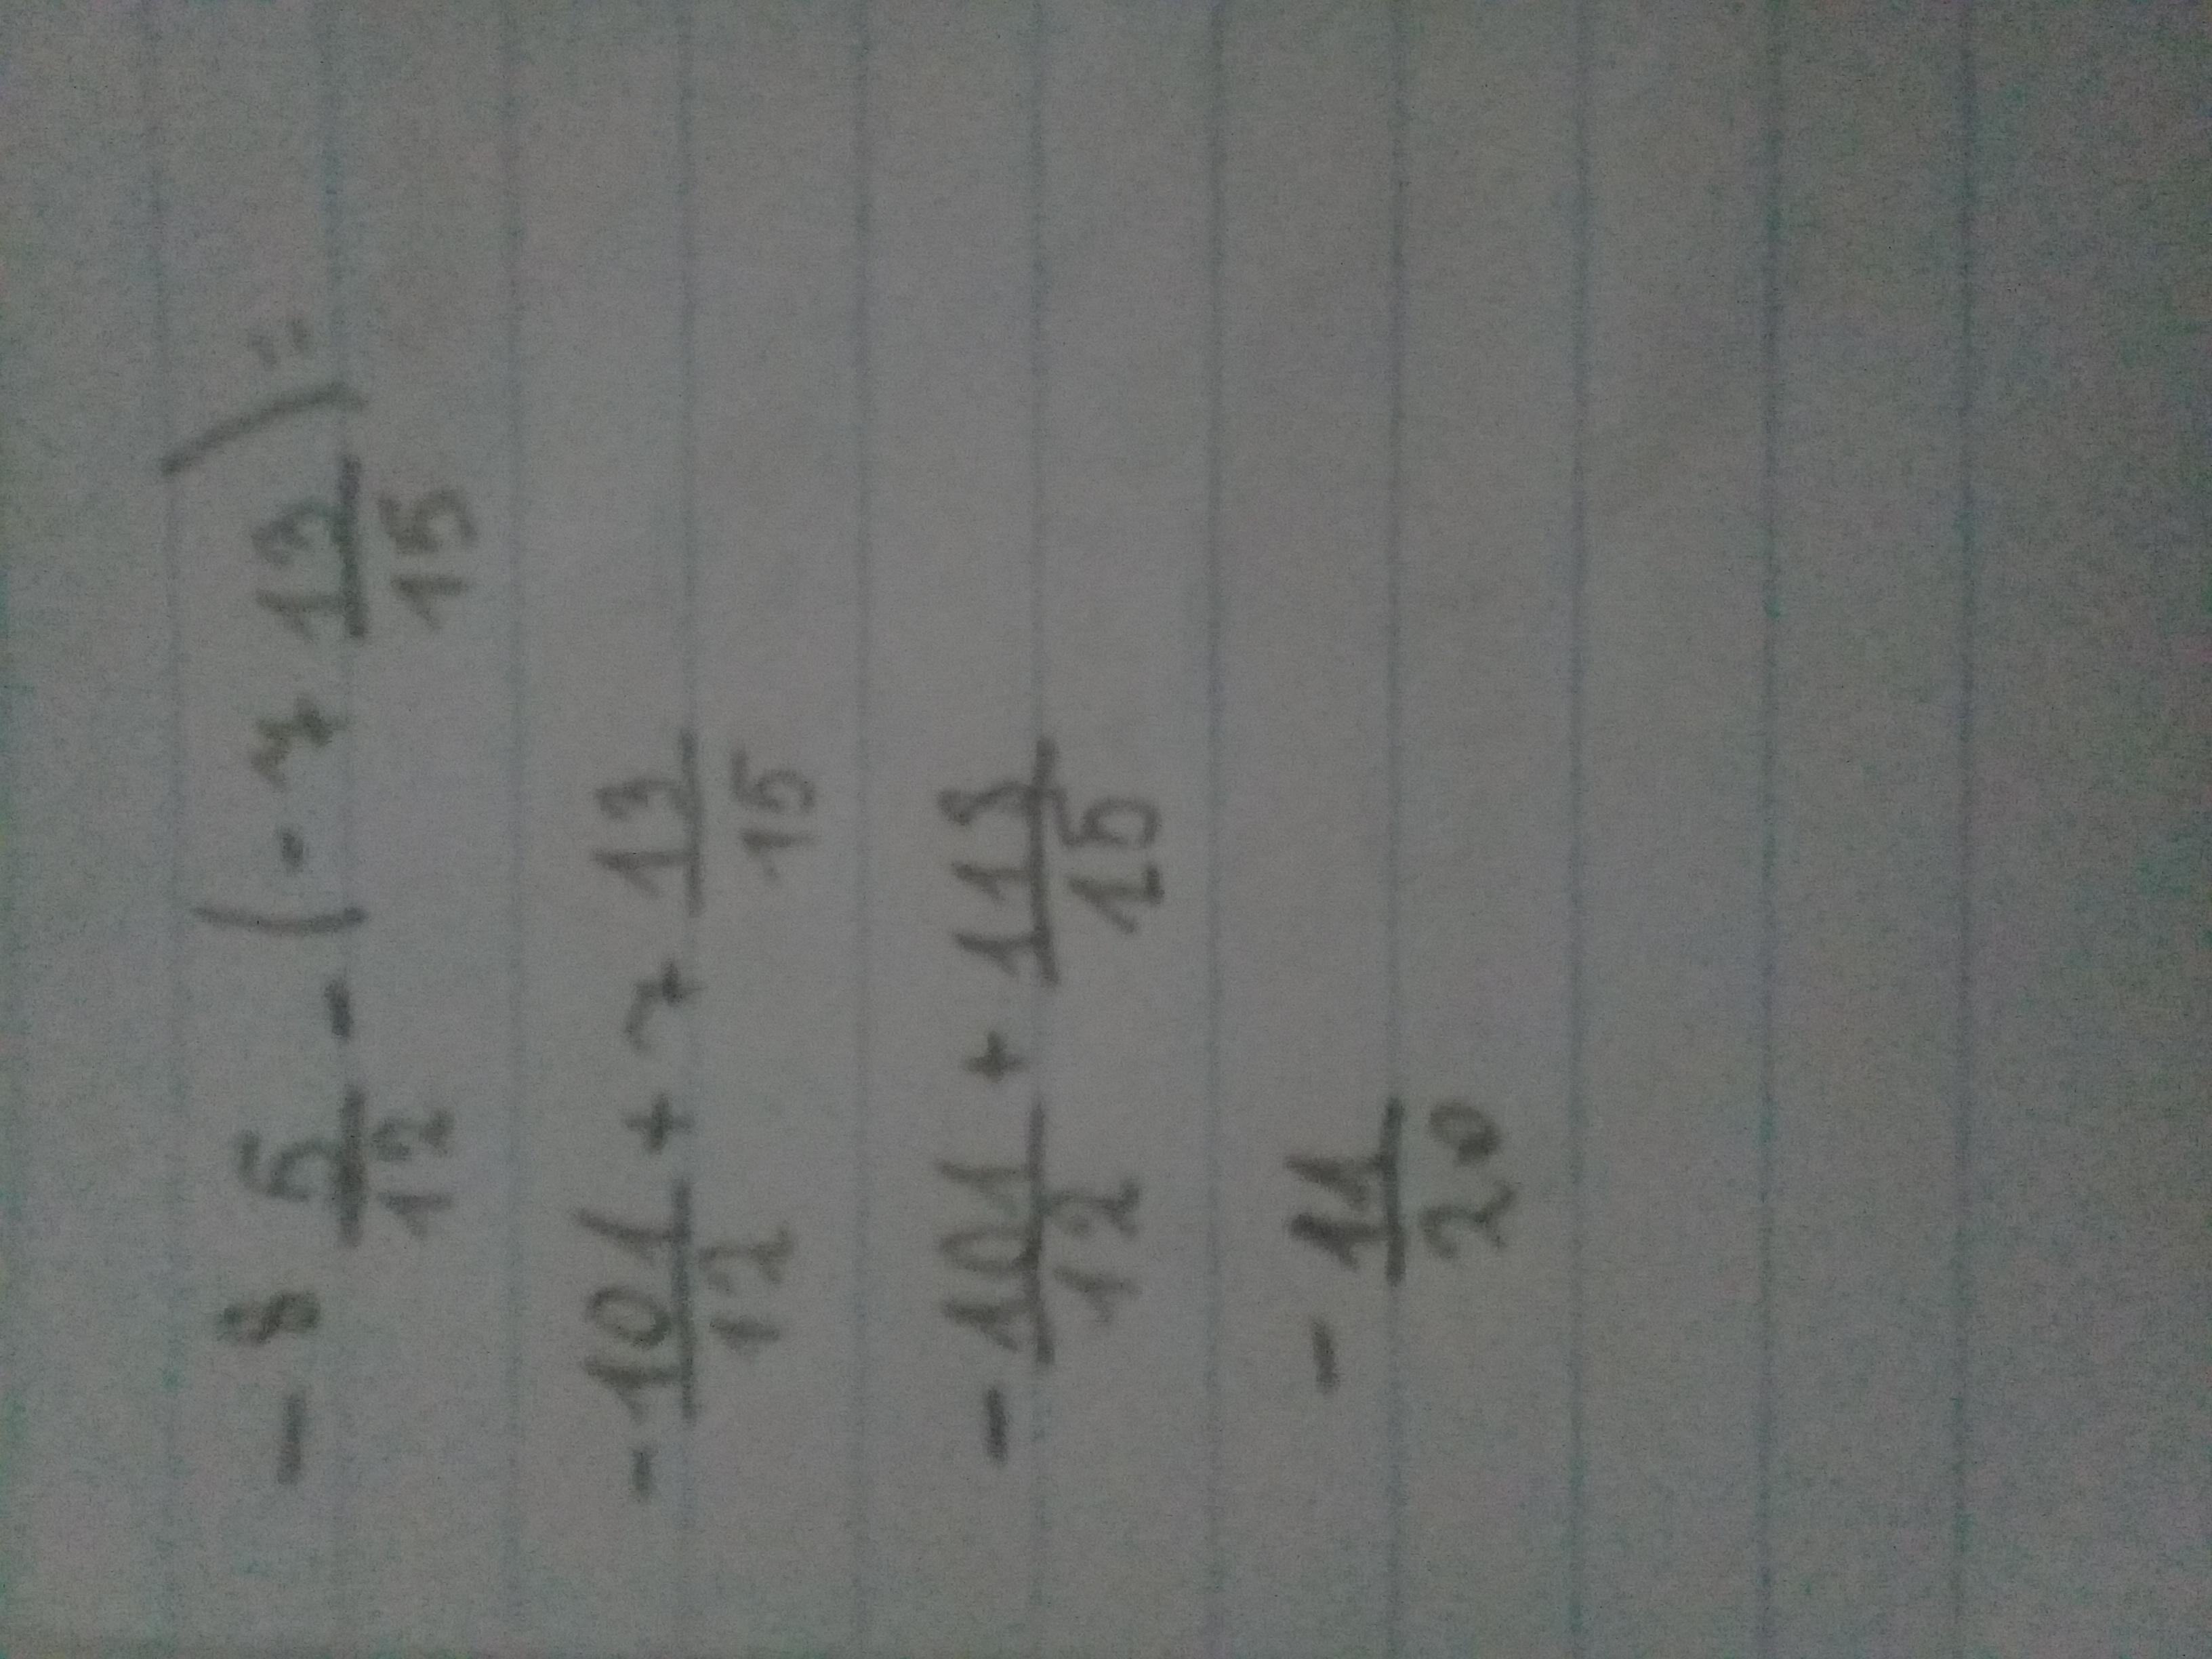 - 8 5/12 - (- 7 13/15) =
- 101/12 + 7 13/15
- 101/12 + 118/15
- 11/20